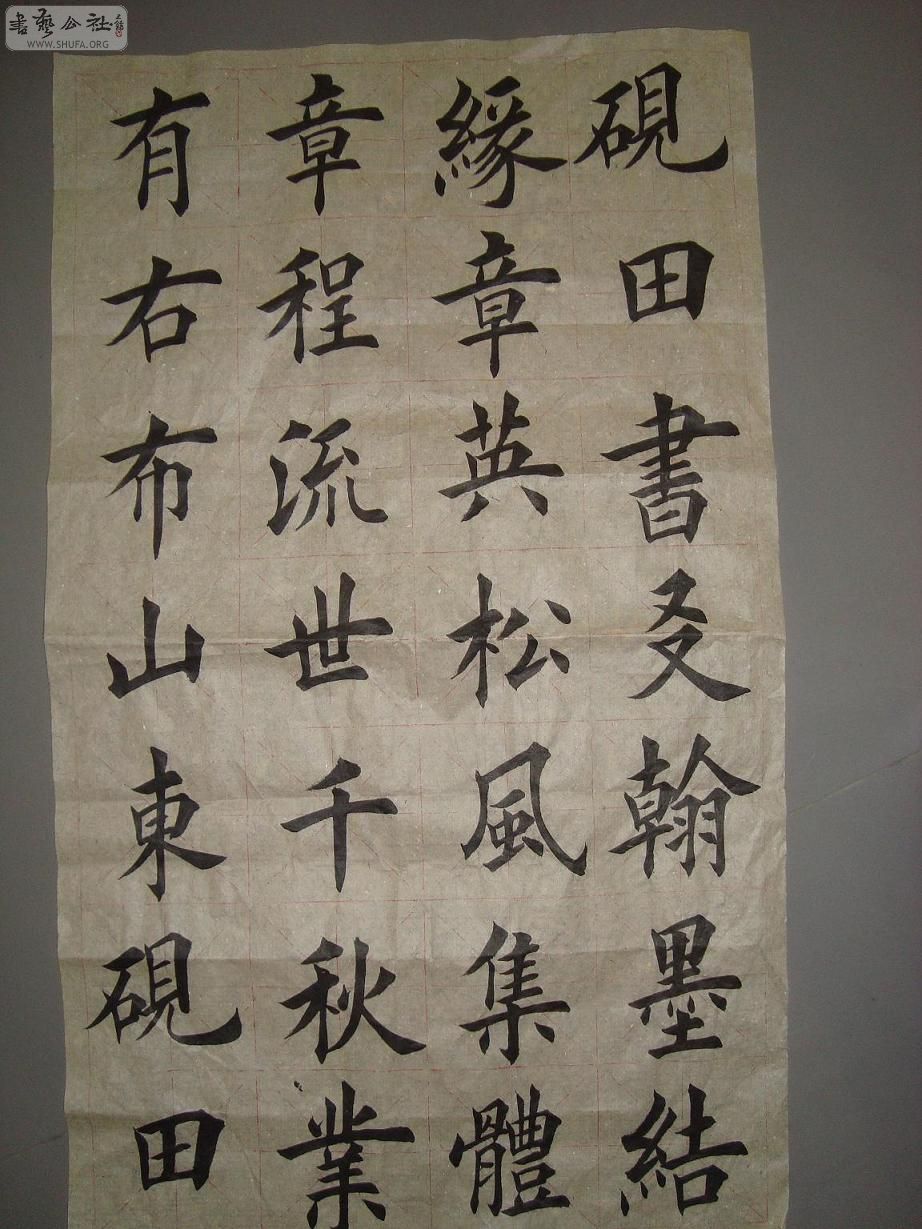 硯田書㕛翰墨結
緣章英松風集體
章程流世千秋業
有右布山東硯田
書藝公社
WWW.SHUFA.ORG